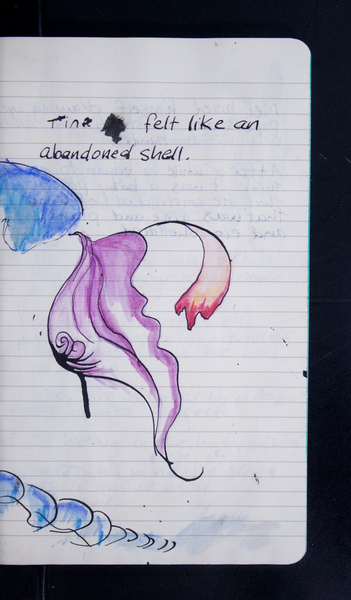 Tina felt like an
abandoned shell.